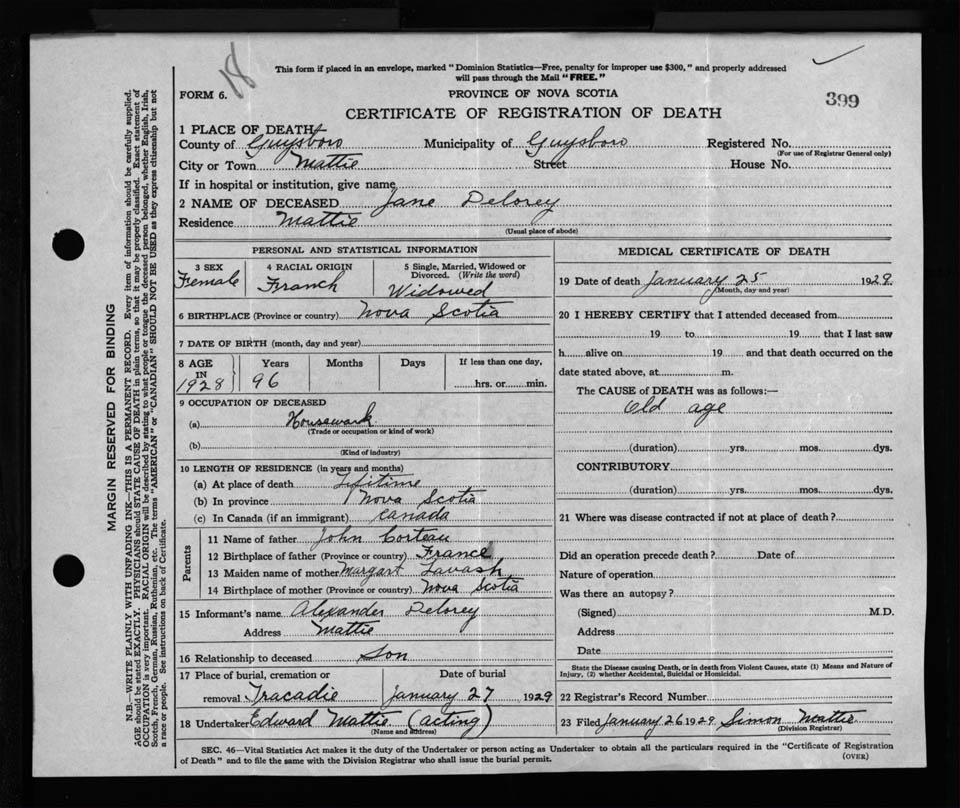 18
This form if placed in an envelope, marked "Dominion Statistics—Free, penalty for improper use $300," and properly addressed
will pass through the Mail "FREE."
FORM 6.
PROVINCE OF NOVA SCOTIA
399
CERTIFICATE OF REGISTRATION OF DEATH
1 PLACE OF DEATH
County of Guysboro Municipality of Guysboro Registered No.
(For use of Registrar General only)
City or Town Mattie Street House No.
If in hospital or institution, give name
2 NAME OF DECEASED Jane Delorey
Residence Mattie
(Usual place of abode)
PERSONAL AND STATISTICAL INFORMATION
3 SEX
Female
4 RACIAL ORIGIN
Franch
5 Single, Married, Widowed or
Divorced. (Write the word)
Widowed
6 BIRTHPLACE (Province or country) Nova Scotia
7 DATE OF BIRTH (month, day and year)
8 AGE
IN
1928
Years
96
Months
Days
If less than one day,
hrs. or min.
9 OCCUPATION OF DECEASED
(a) Housewark
(Trade or occupation or kind of work)
(b)
(Kind of industry)
10 LENGTH OF RESIDENCE (in years and months)
(a) At place of death Lifitime
(b) In province Nova Scotia
(c) In Canada (if an immigrant) Canada
Parents
11 Name of father John Corteau
12 Birthplace of father (Province or country) France
13 Maiden name of mother Margart Lavash
14 Birthplace of mother (Province or country) Nova Scotia
15 Informant's name Alexander Delorey
Address Mattie
16 Relationship to deceased Son
17 Place of burial, cremation or
removal Tracadie
Date of burial
January 27 1929
18 Undertaker Edward Mattie (acting)
(Name and address)
MEDICAL CERTIFICATE OF DEATH
19 Date of death January 25 1929
(Month, day and year)
20 I HEREBY CERTIFY that I attended deceased from
19 to 19 that I last saw
h alive on 19 and that death occurred on the
date stated above, at m.
The CAUSE of DEATH was as follows:—
Old age
(duration) yrs. mos. dys.
CONTRIBUTORY
(duration) yrs. mos. dys.
21 Where was disease contracted if not at place of death?
Did an operation precede death? Date of
Nature of operation
Was there an autopsy?
(Signed) M.D.
Address
Date
State the Disease causing Death, or in death from Violent Causes, state (1) Means and Nature of
Injury, (2) whether Accidental, Suicidal or Homicidal.
22 Registrar's Record Number
23 Filed January 26 1929 Simon Mattie
(Division Registrar)
SEC. 46—Vital Statistics Act makes it the duty of the Undertaker or person acting as Undertaker to obtain all the particulars required in the "Certificate of Registration
of Death" and to file the same with the Division Registrar who shall issue the burial permit.
(OVER)
MARGIN RESERVED FOR BINDING
N.B.—WRITE PLAINLY WITH UNFADING INK—THIS IS A PERMANENT RECORD. Every item of information should be carefully supplied.
AGE should be stated EXACTLY. PHYSICIANS should STATE CAUSE OF DEATH in plain terms, so that it may be properly classified. Exact statement of
OCCUPATION is very important. RACIAL ORIGIN will be described by stating to what people or tongue the deceased person belonged, whether English, Irish,
Scotch, French, German, Russian, Ruthenian, etc. The terms "AMERICAN" or "CANADIAN" SHOULD NOT BE USED as they express citizenship but not
a race or people. See instructions on back of Certificate.